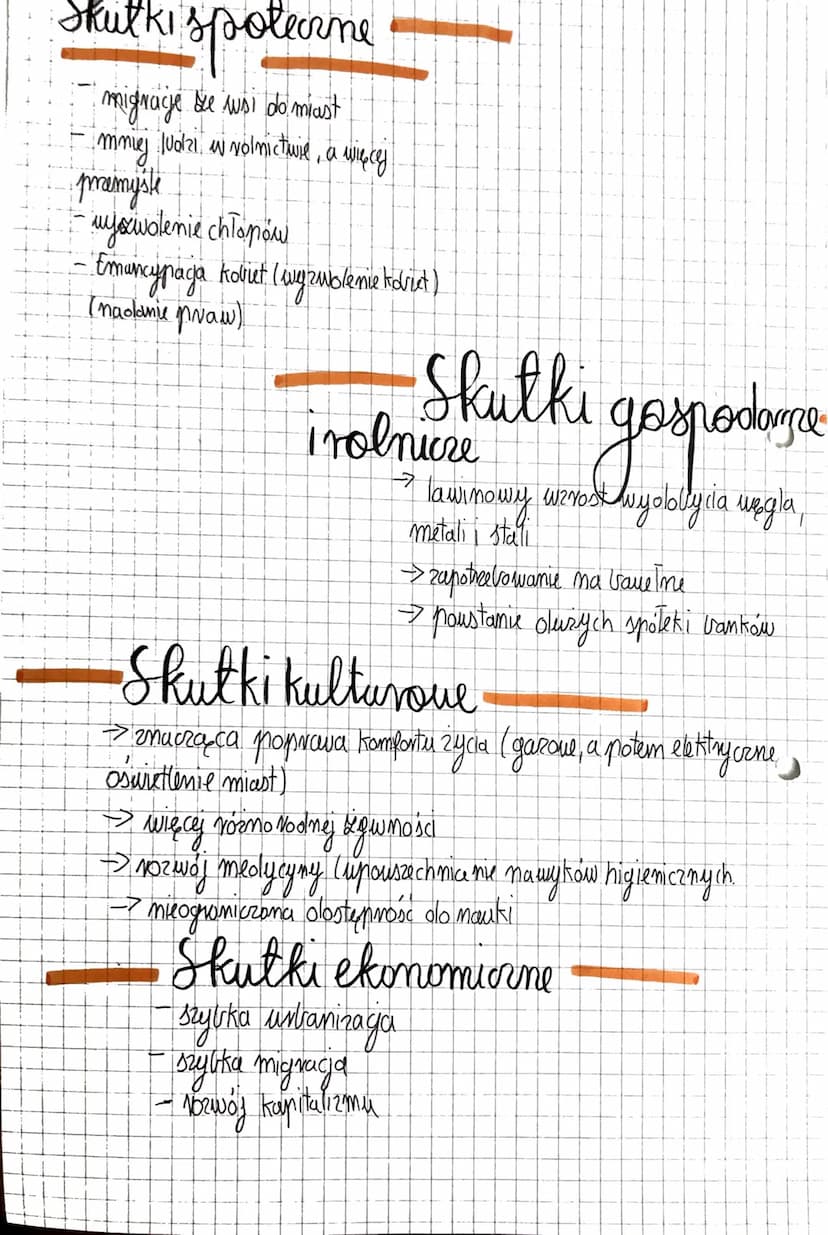 Skutki społeczne
- migracje ze wsi do miast
- mniej ludzi w rolnictwie, a więcej
przemyśle
- wyzwolenie chłopów
- Emancypacja kobiet (wyzwolenie kobiet)
(nadanie praw)
Skutki gospodarcze
i rolnicze
→ lawinowy wzrost wydobycia węgla,
metali i stali
→ zapotrzebowanie na bawełnę
→ powstanie dużych spółek i banków
Skutki kulturowe
→ znacząca poprawa komfortu życia (gazowe, a potem elektryczne
oświetlenie miast)
→ więcej różnorodnej żywności
→ rozwój medycyny (upowszechnianie nawyków higienicznych.
→ nieograniczona dostępność do nauki
Skutki ekonomiczne
- szybka urbanizacja
- szybka migracja
- rozwój kapitalizmu